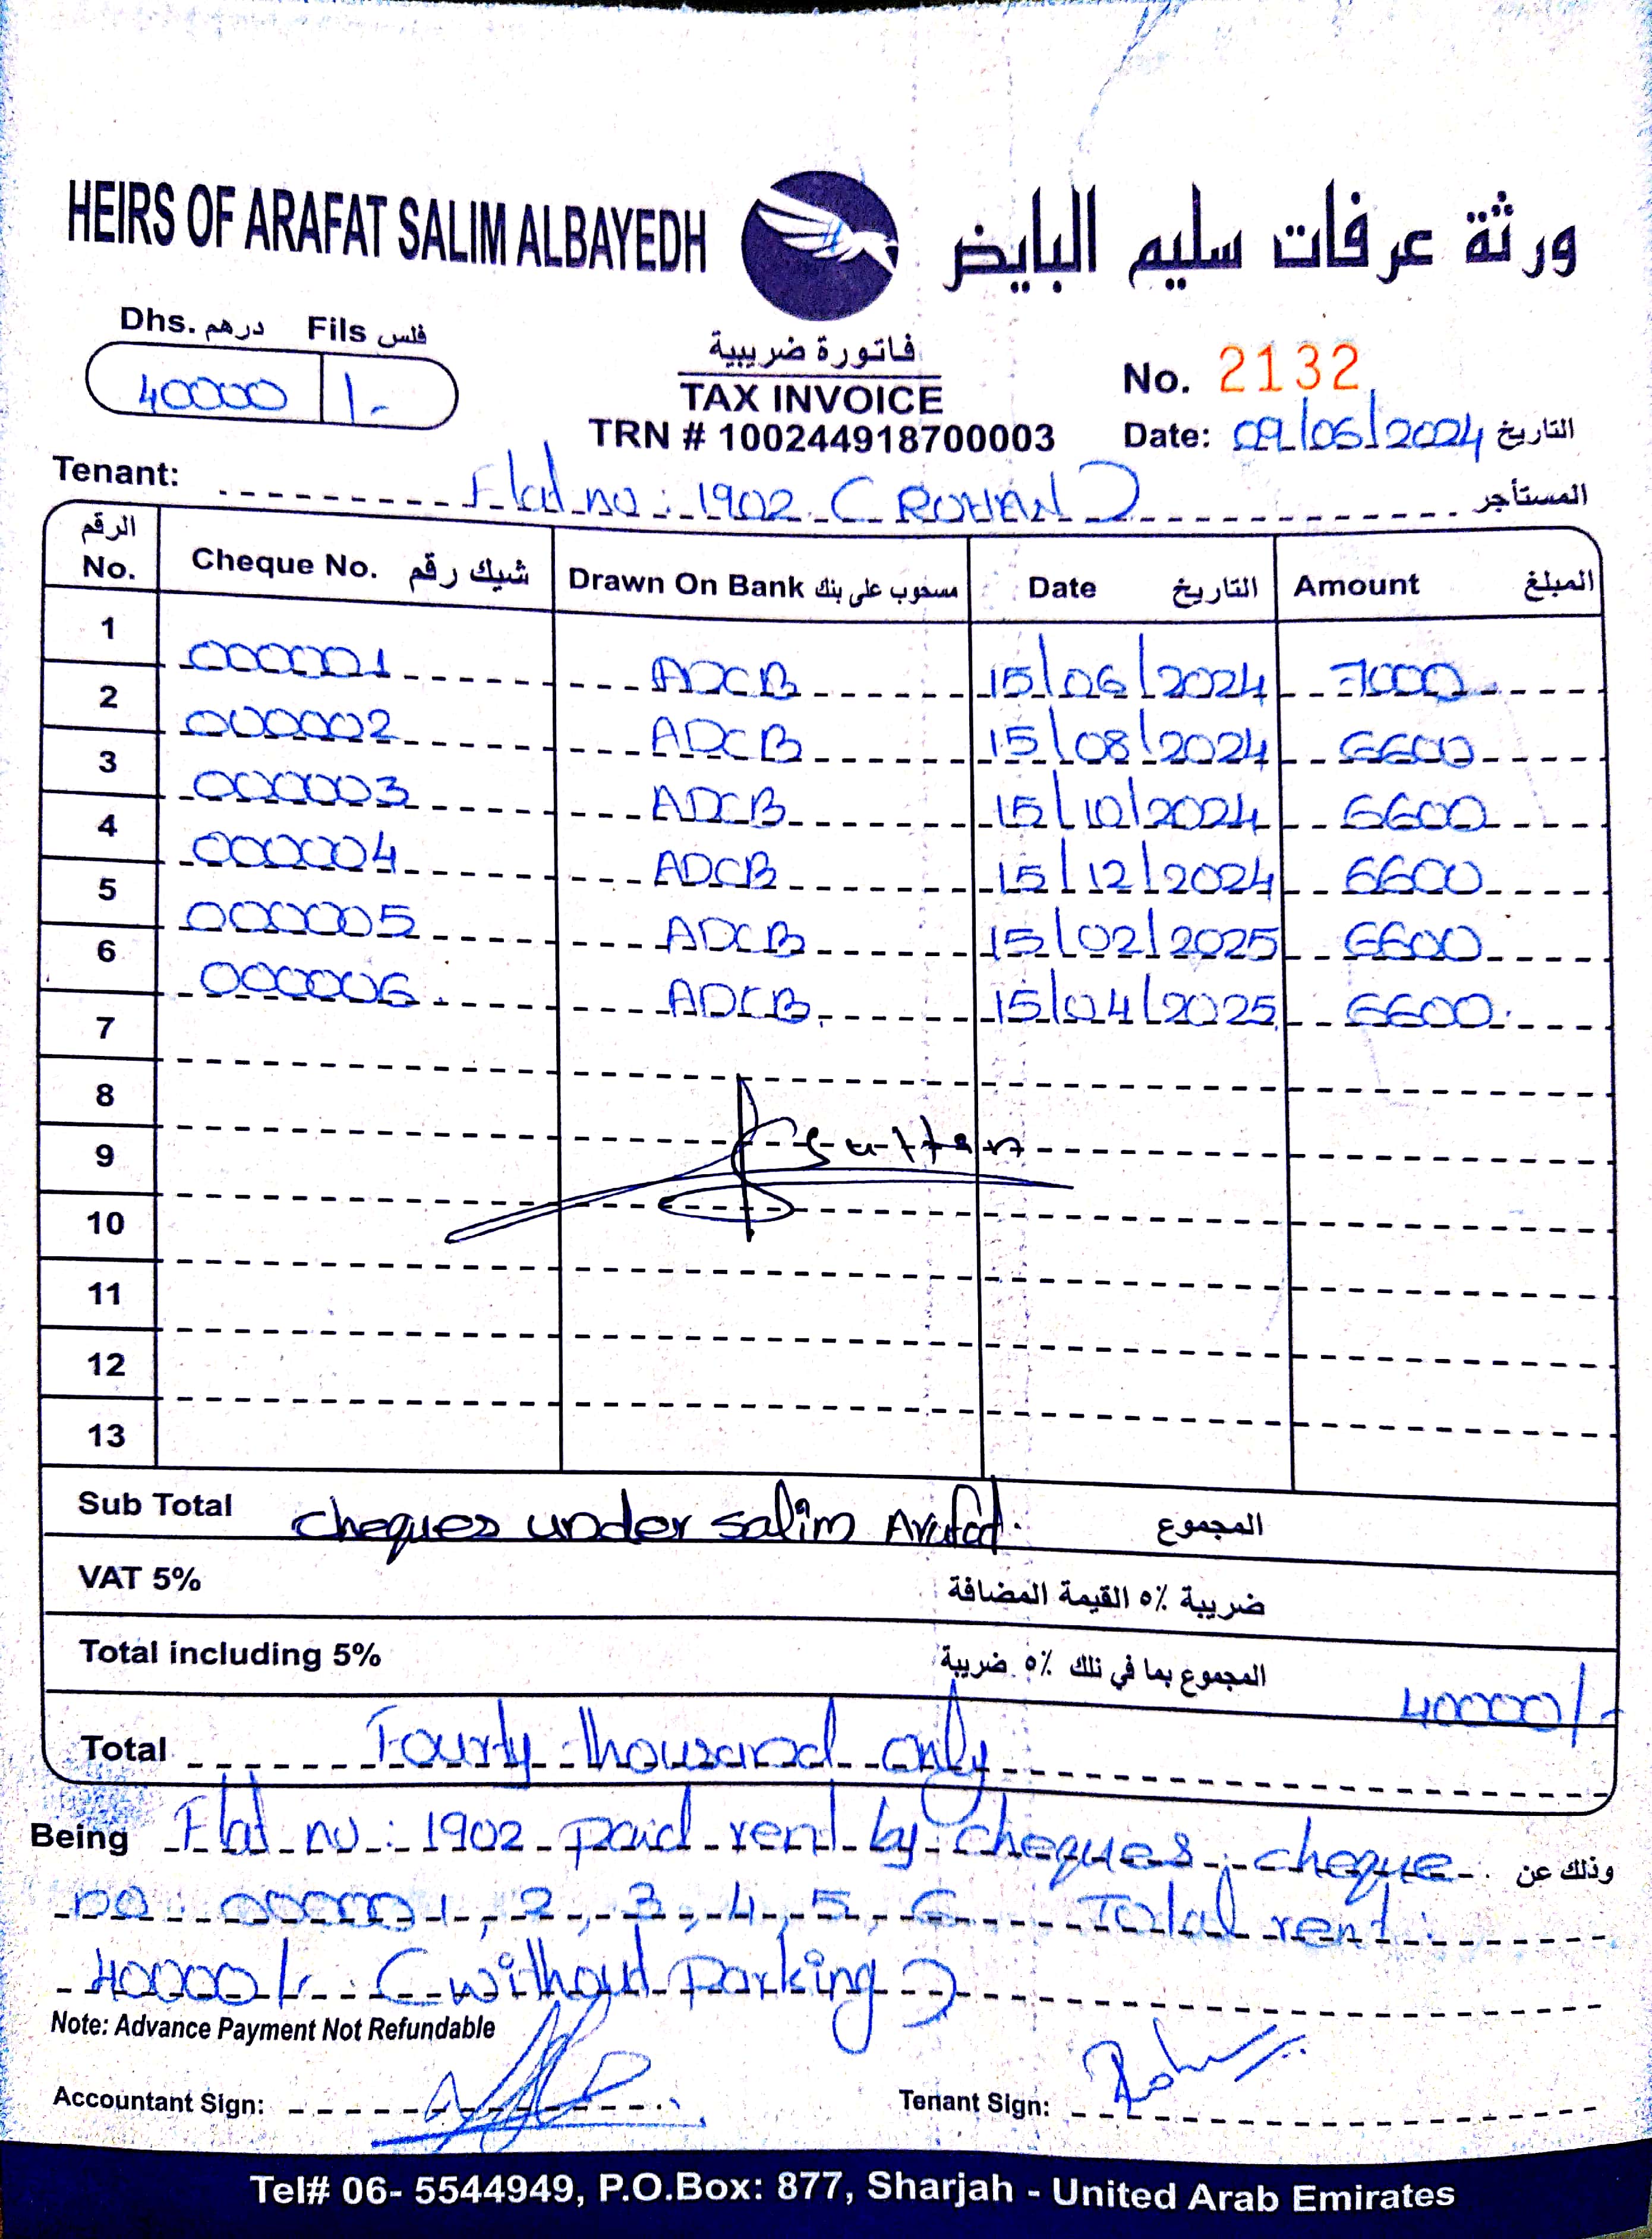 HEIRS OF ARAFAT SALIM ALBAYEDH ورثة عرفات سليم البايض
Dhs. درهم Fils فلس
40000 /-
فاتورة ضريبية
TAX INVOICE
TRN # 100244918700003
No. 2132
Date: 09/06/2024 التاريخ
Tenant: Flat no: 1902 (ROHAN) المستأجر
الرقم No. Cheque No. شيك رقم Drawn On Bank مسحوب على بنك Date التاريخ Amount المبلغ
1 000001 ADCB 15/06/2024 7000
2 000002 ADCB 15/08/2024 6600
3 000003 ADCB 15/10/2024 6600
4 000004 ADCB 15/12/2024 6600
5 000005 ADCB 15/02/2025 6600
6 000006 ADCB 15/04/2025 6600
7
8
9 Sultan
10
11
12
13
Sub Total cheques under salim Arafat. المجموع
VAT 5% ضريبة ٥% القيمة المضافة
Total including 5% المجموع بما في ذلك ٥% ضريبة 40000/-
Total Fourty thousand only
Being Flat no: 1902 paid rent by cheques. cheque وذلك عن
no: 000001, 2, 3, 4, 5, 6 Total rent:
40000/- (without parking)
Note: Advance Payment Not Refundable
Accountant Sign: Tenant Sign:
Tel# 06- 5544949, P.O.Box: 877, Sharjah - United Arab Emirates